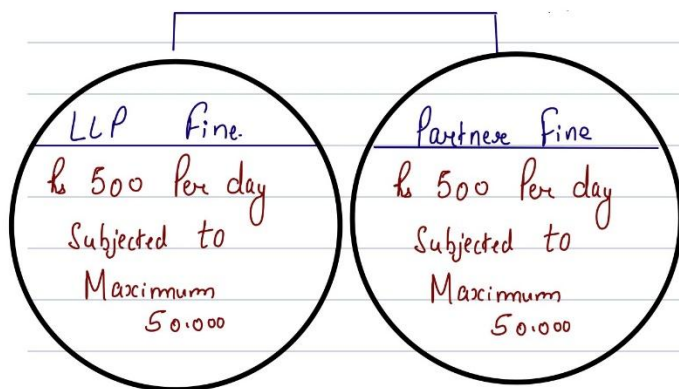 LLP Fine.
Rs 500 Per day
Subjected to
Maximum
50.000
Partners Fine
Rs 500 Per day
Subjected to
Maximum
50.000